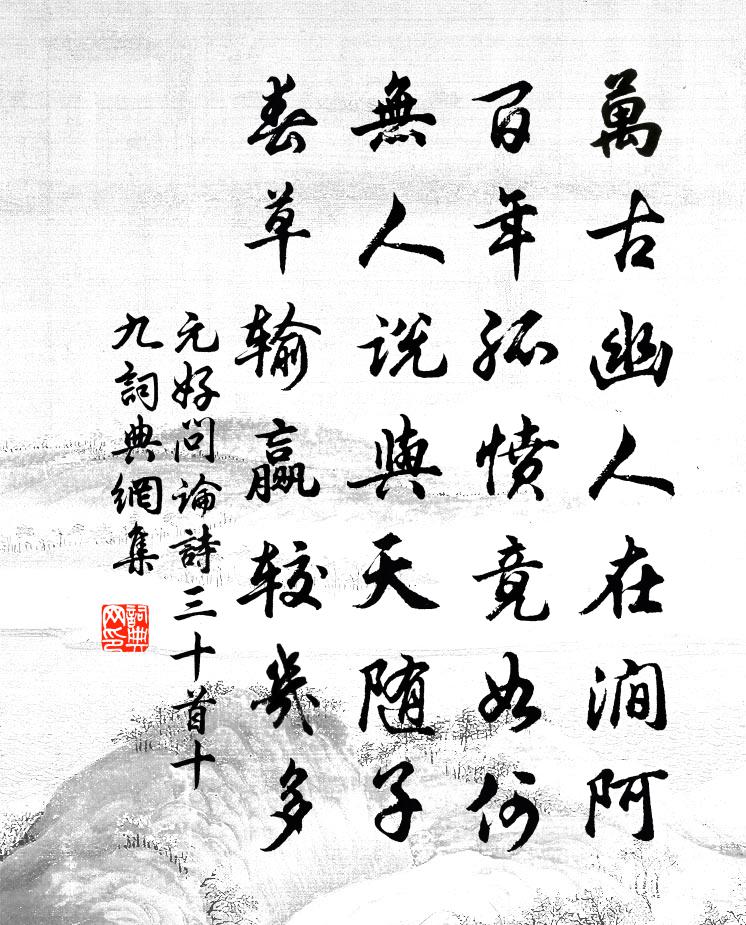 萬古幽人在澗阿
百年孤憤竟如何
無人說與天随子
春草输贏较幾多
元好問論詩三十首十
九詞典網集
詞典
网印